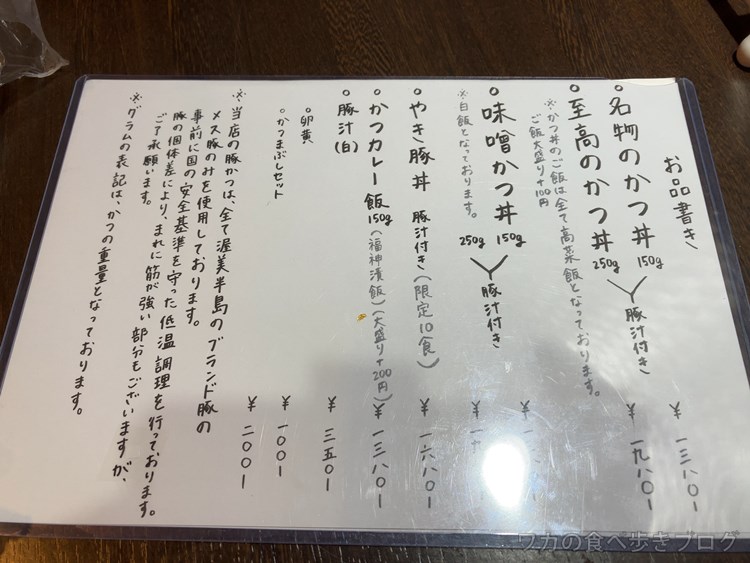 お品書き
• 名物のかつ丼 150g 豚汁付き ¥一三八〇-
• 至高のかつ丼 250g ¥一九八〇-
※かつ丼のご飯は全て高菜飯となっております。
ご飯大盛り+100円
• 味噌かつ丼 150g 豚汁付き ¥
250g ¥
※白飯となっております。
• やき豚丼 豚汁付き(限定10食) ¥一六八〇-
• かつカレー飯 150g (福神漬飯)(大盛り+200円) ¥一三八〇-
• 豚汁(白) ¥三五〇-
• 卵黄 ¥一〇〇-
• かつまぶしセット ¥二〇〇-
※当店の豚かつは、全て渥美半島のブランド豚の
メス豚のみを使用しております。
事前に国の安全基準を守った低温調理を行っております。
豚の個体差により、まれに筋が強い部分もございますが、
ご了承願います。
※グラムの表記は、かつの重量となっております。
ワカの食べ歩きブログ